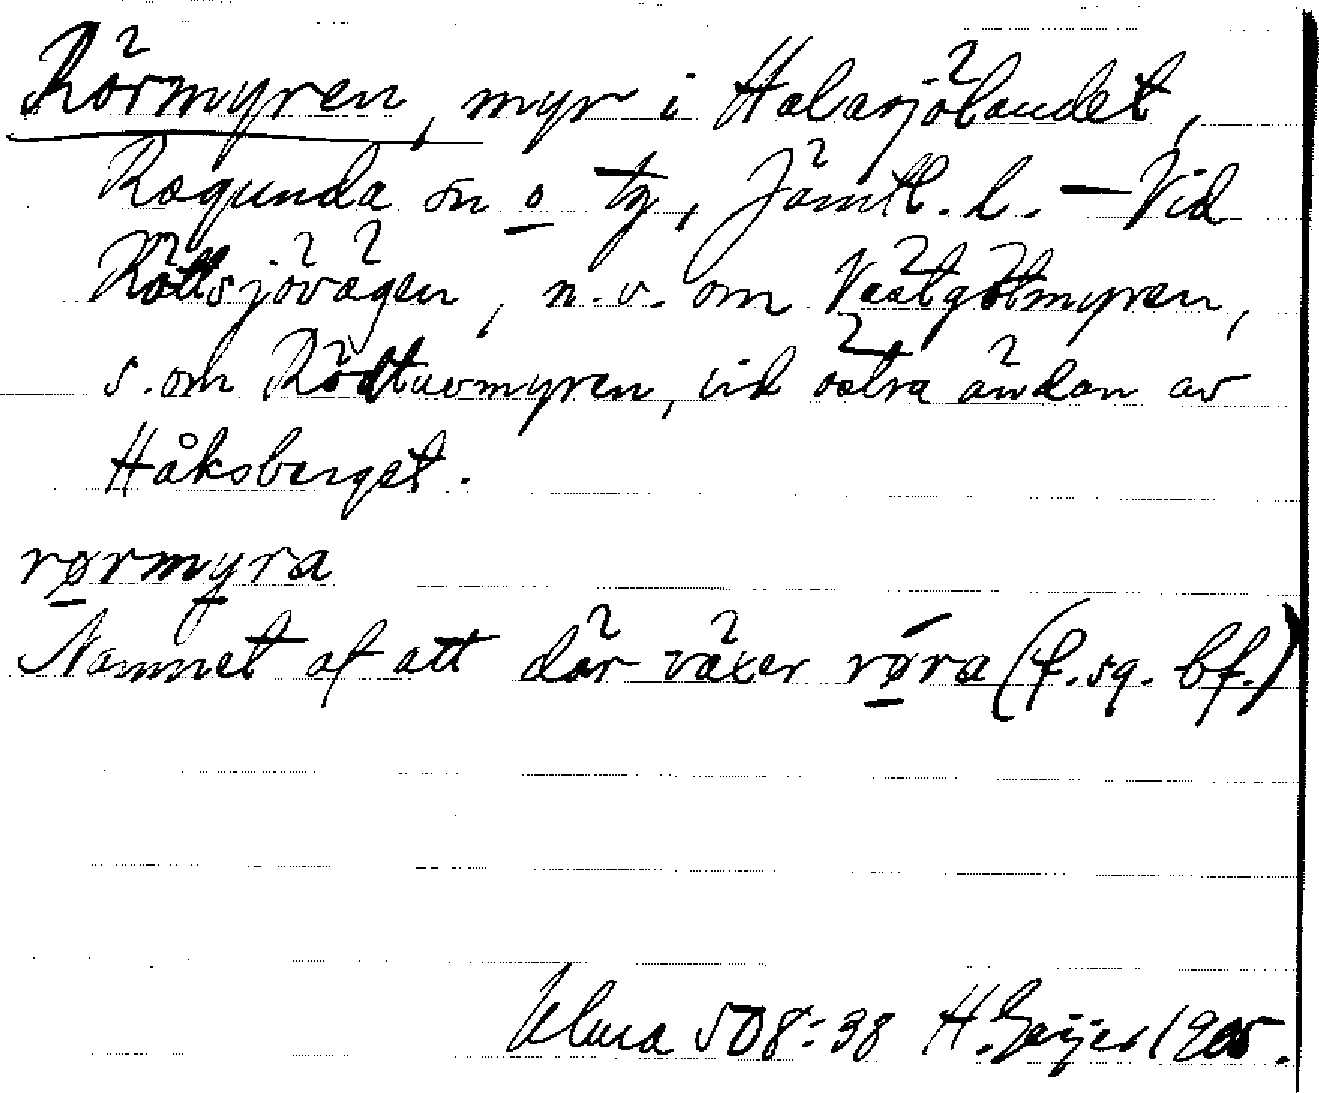 Rörmyren, myr i Halasjölandet,
Ragunda sn o tg, Jämtl. l. — Vid
Rättsjövägen, n.v. om Västgötmyren,
s. om Rödtuvmyren, vid östra ändan av
Håksberget.
rørmyra
Namnet af att där växer røra (f. sg. bf.)
Ulma 508:38 H. Geijer 1905.